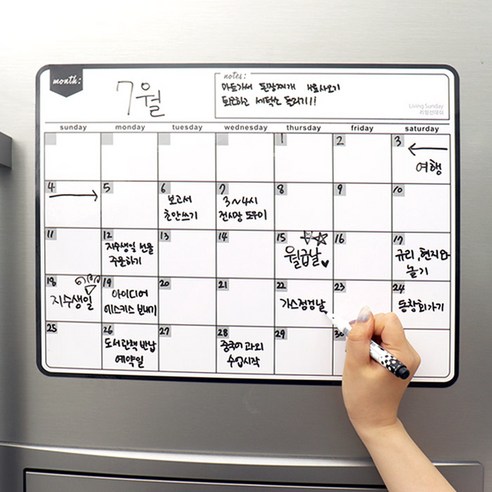 month:
7월
notes:
마트가서 된장찌개 재료사오기
퇴근하고 세탁소 들리기!!
Living Sunday
리빙선데이
sunday monday tuesday wednesday thursday friday saturday
1 2 3
여행
4 5 6 7 8 9 10
보고서
초안쓰기
3~4시
전시장 도우미
11 12 13 14 15 16 17
지수생일 선물
주문하기
월급날
규리, 현지와
놀기
18 19 20 21 22 23 24
지수생일
아이디어
에스키스 보내기
가스점검날
동창회가기
25 26 27 28 29 30
도서관책 반납
예약일
중국어 과외
수업시작